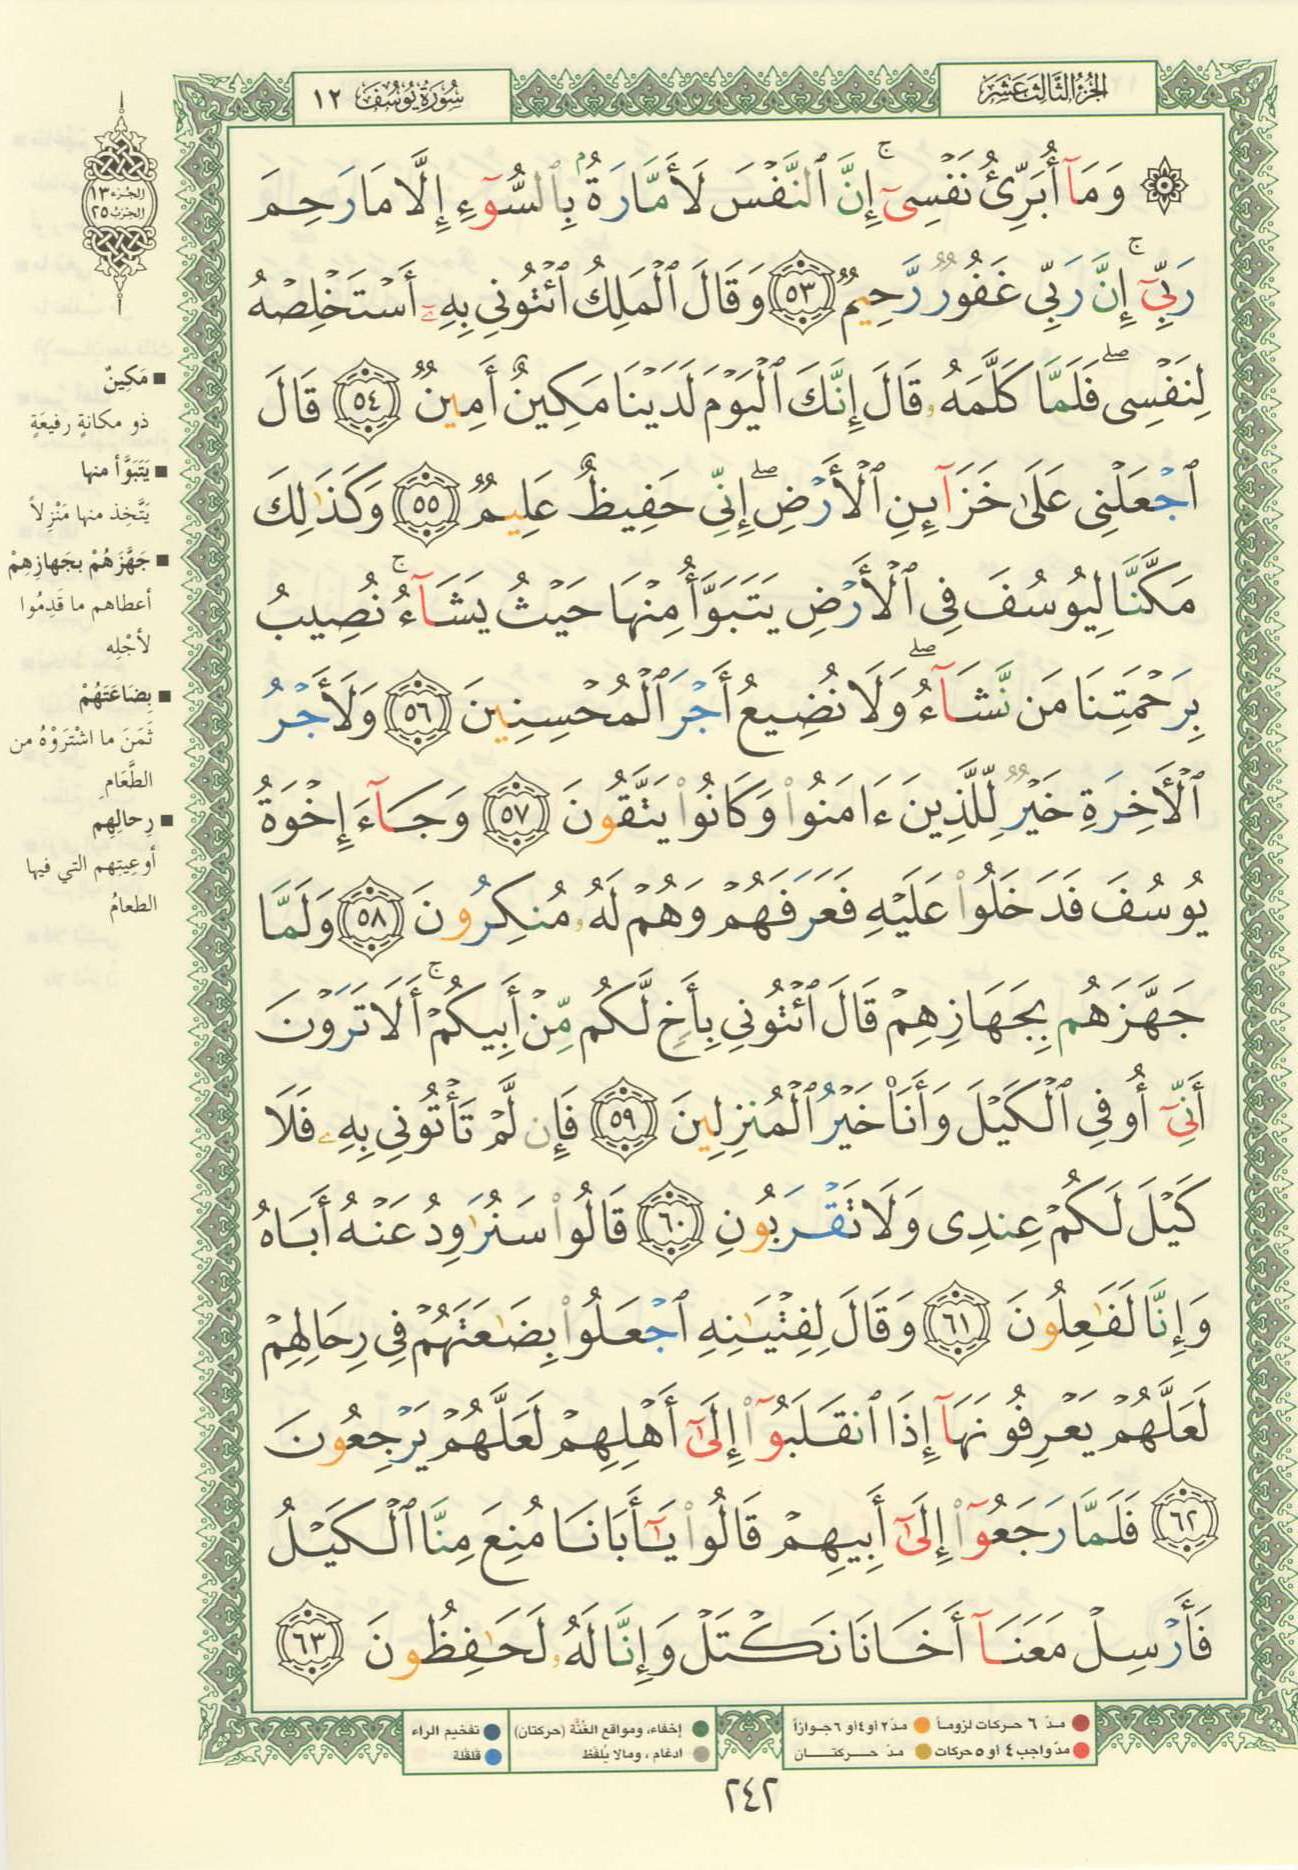 الجزء الثالث عشر
سورة يوسف ١٢
الجزء ١٣
الحزب ٢٥
۞ وَمَآ أُبَرِّئُ نَفْسِىٓ ۚ إِنَّ ٱلنَّفْسَ لَأَمَّارَةٌۢ بِٱلسُّوٓءِ إِلَّا مَا رَحِمَ
رَبِّىٓ ۚ إِنَّ رَبِّى غَفُورٌ رَّحِيمٌ ٥٣ وَقَالَ ٱلْمَلِكُ ٱئْتُونِى بِهِۦٓ أَسْتَخْلِصْهُ
لِنَفْسِى ۖ فَلَمَّا كَلَّمَهُۥ قَالَ إِنَّكَ ٱلْيَوْمَ لَدَيْنَا مَكِينٌ أَمِينٌ ٥٤ قَالَ
ٱجْعَلْنِى عَلَىٰ خَزَآئِنِ ٱلْأَرْضِ ۖ إِنِّى حَفِيظٌ عَلِيمٌ ٥٥ وَكَذَٰلِكَ
مَكَّنَّا لِيُوسُفَ فِى ٱلْأَرْضِ يَتَبَوَّأُ مِنْهَا حَيْثُ يَشَآءُ ۚ نُصِيبُ
بِرَحْمَتِنَا مَن نَّشَآءُ ۖ وَلَا نُضِيعُ أَجْرَ ٱلْمُحْسِنِينَ ٥٦ وَلَأَجْرُ
ٱلْأَخِرَةِ خَيْرٌ لِّلَّذِينَ ءَامَنُوا۟ وَكَانُوا۟ يَتَّقُونَ ٥٧ وَجَآءَ إِخْوَةُ
يُوسُفَ فَدَخَلُوا۟ عَلَيْهِ فَعَرَفَهُمْ وَهُمْ لَهُۥ مُنكِرُونَ ٥٨ وَلَمَّا
جَهَّزَهُم بِجَهَازِهِمْ قَالَ ٱئْتُونِى بِأَخٍ لَّكُم مِّنْ أَبِيكُمْ ۚ أَلَا تَرَوْنَ
أَنِّىٓ أُوفِى ٱلْكَيْلَ وَأَنَا۠ خَيْرُ ٱلْمُنزِلِينَ ٥٩ فَإِن لَّمْ تَأْتُونِى بِهِۦ فَلَا
كَيْلَ لَكُمْ عِندِى وَلَا تَقْرَبُونِ ٦٠ قَالُوا۟ سَنُرَٰوِدُ عَنْهُ أَبَاهُ
وَإِنَّا لَفَٰعِلُونَ ٦١ وَقَالَ لِفِتْيَٰنِهِ ٱجْعَلُوا۟ بِضَٰعَتَهُمْ فِى رِحَالِهِمْ
لَعَلَّهُمْ يَعْرِفُونَهَآ إِذَا ٱنقَلَبُوٓا۟ إِلَىٰٓ أَهْلِهِمْ لَعَلَّهُمْ يَرْجِعُونَ
٦٢ فَلَمَّا رَجَعُوٓا۟ إِلَىٰٓ أَبِيهِمْ قَالُوا۟ يَٰٓأَبَانَا مُنِعَ مِنَّا ٱلْكَيْلُ
فَأَرْسِلْ مَعَنَآ أَخَانَا نَكْتَلْ وَإِنَّا لَهُۥ لَحَٰفِظُونَ ٦٣
■ مَكِينٌ
ذو مكانةٍ رفيعَةٍ
■ يَتَبَوَّأ منها
يَتَّخِذ منها مَنْزِلاً
■ جَهَّزَهُمْ بجَهازِهِمْ
أعطاهم ما قَدِمُوا
لأجْلِه
■ بِضَاعَتَهُمْ
ثَمَنَ ما اشْتَرَوْهُ من
الطَّعَامِ
■ رِحالِهِم
أوعِيتِهم التي فيها
الطعامُ
مدّ ٦ حركات لزوماً
مدّ ٢ أو ٤ أو ٦ جوازاً
مدّ واجب ٤ أو ٥ حركات
مدّ حركتان
إخفاء، ومواقع الغُنَّة (حركتان)
ادغام، ومالا يُلفَظ
تفخيم الراء
قلقلة
٢٤٢